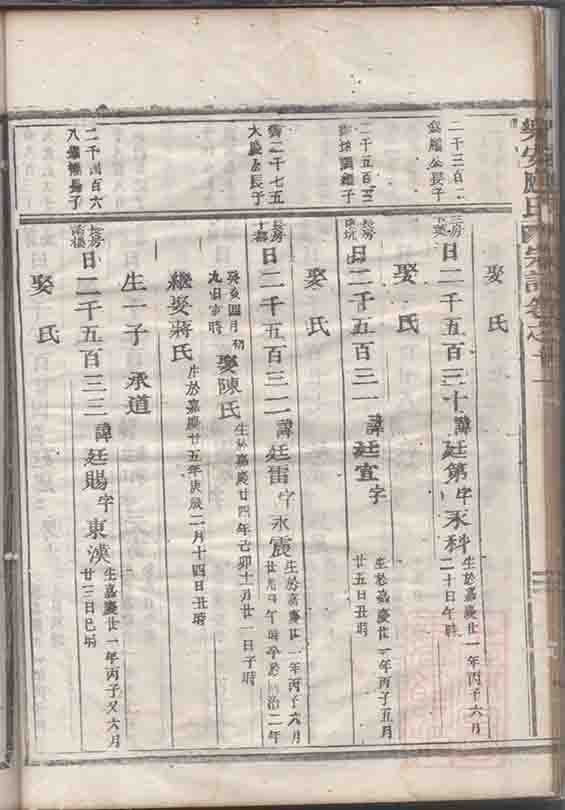 樂安廖氏
二千三百二
公長子
三房
日二千五百三十諱廷第字永科
生於嘉慶廿一年丙子六月
二十日午時
娶氏
二千五百三
長房
日二千五百三一諱廷宜字
生於嘉慶廿一年丙子五月
廿五日丑時
娶氏
二千七五
公長子
長房
日二千五百三二諱廷雷字永震
生於嘉慶廿一年丙子六月
治二年
癸亥四月初
九日吉時
娶陳氏
生於嘉慶廿四年己卯十月廿一日子時
繼娶蔣氏
生於嘉慶廿五年庚辰二月十四日丑時
生一子承道
二千四百六
八長子
長房
日二千五百三三諱廷賜字東漢
生嘉慶廿一年丙子又六月
廿三日巳時
娶氏